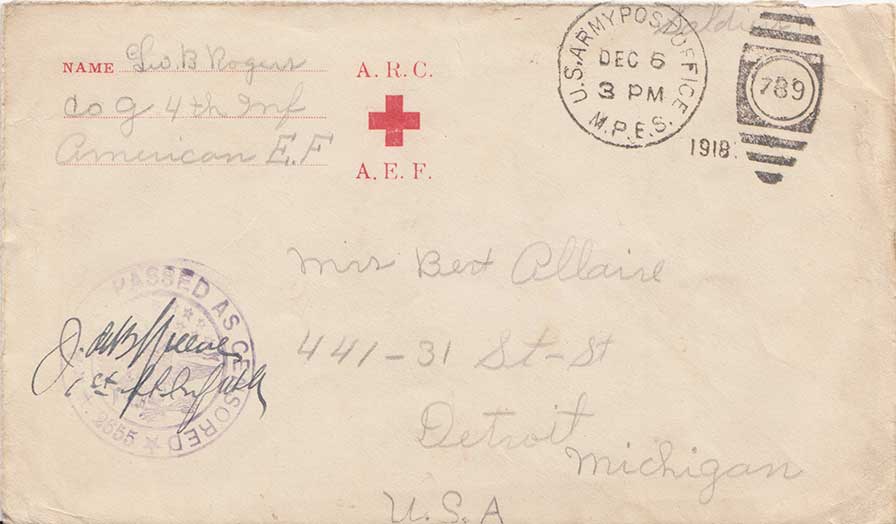 NAME Geo. B Rogers
Co G 4th Inf
American E.F
A.R.C.
A.E.F.
U.S. ARMY POST OFFICE
DEC 6
3 PM
M.P.E.S.
1918
789
Mrs Bert Allaire
441-31 St-St
Detroit
Michigan
U.S.A
PASSED AS CENSORED
2655